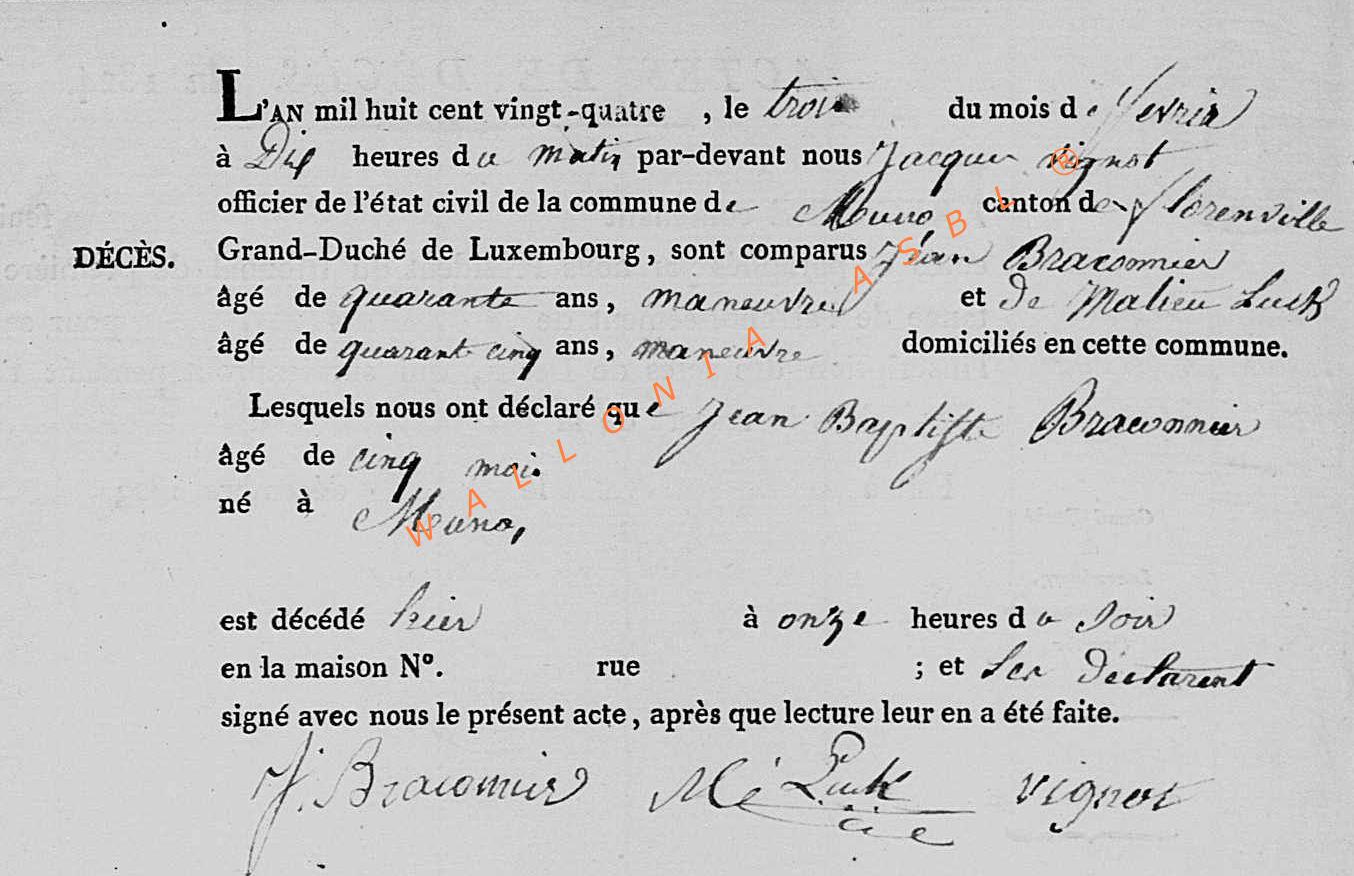 L'AN mil huit cent vingt-quatre , le trois du mois de fevrier
à Dix heures du matin par-devant nous Jacques vignot
officier de l'état civil de la commune de Muno canton de florenville
DÉCÈS. Grand-Duché de Luxembourg, sont comparus Jéan Braconnier
âgé de quarante ans, maneuvre et de Matieu Luck
âgé de quarante cinq ans, maneuvre domiciliés en cette commune.
Lesquels nous ont déclaré que Jean Baptiste Braconnier
âgé de cinq mois
né à Muno,
est décédé hier à onze heures du Soir
en la maison N°. rue ; et Les Declarent
signé avec nous le présent acte, après que lecture leur en a été faite.
J. Braconnier Mé Luck vignot
WALLONIA ASBL ®